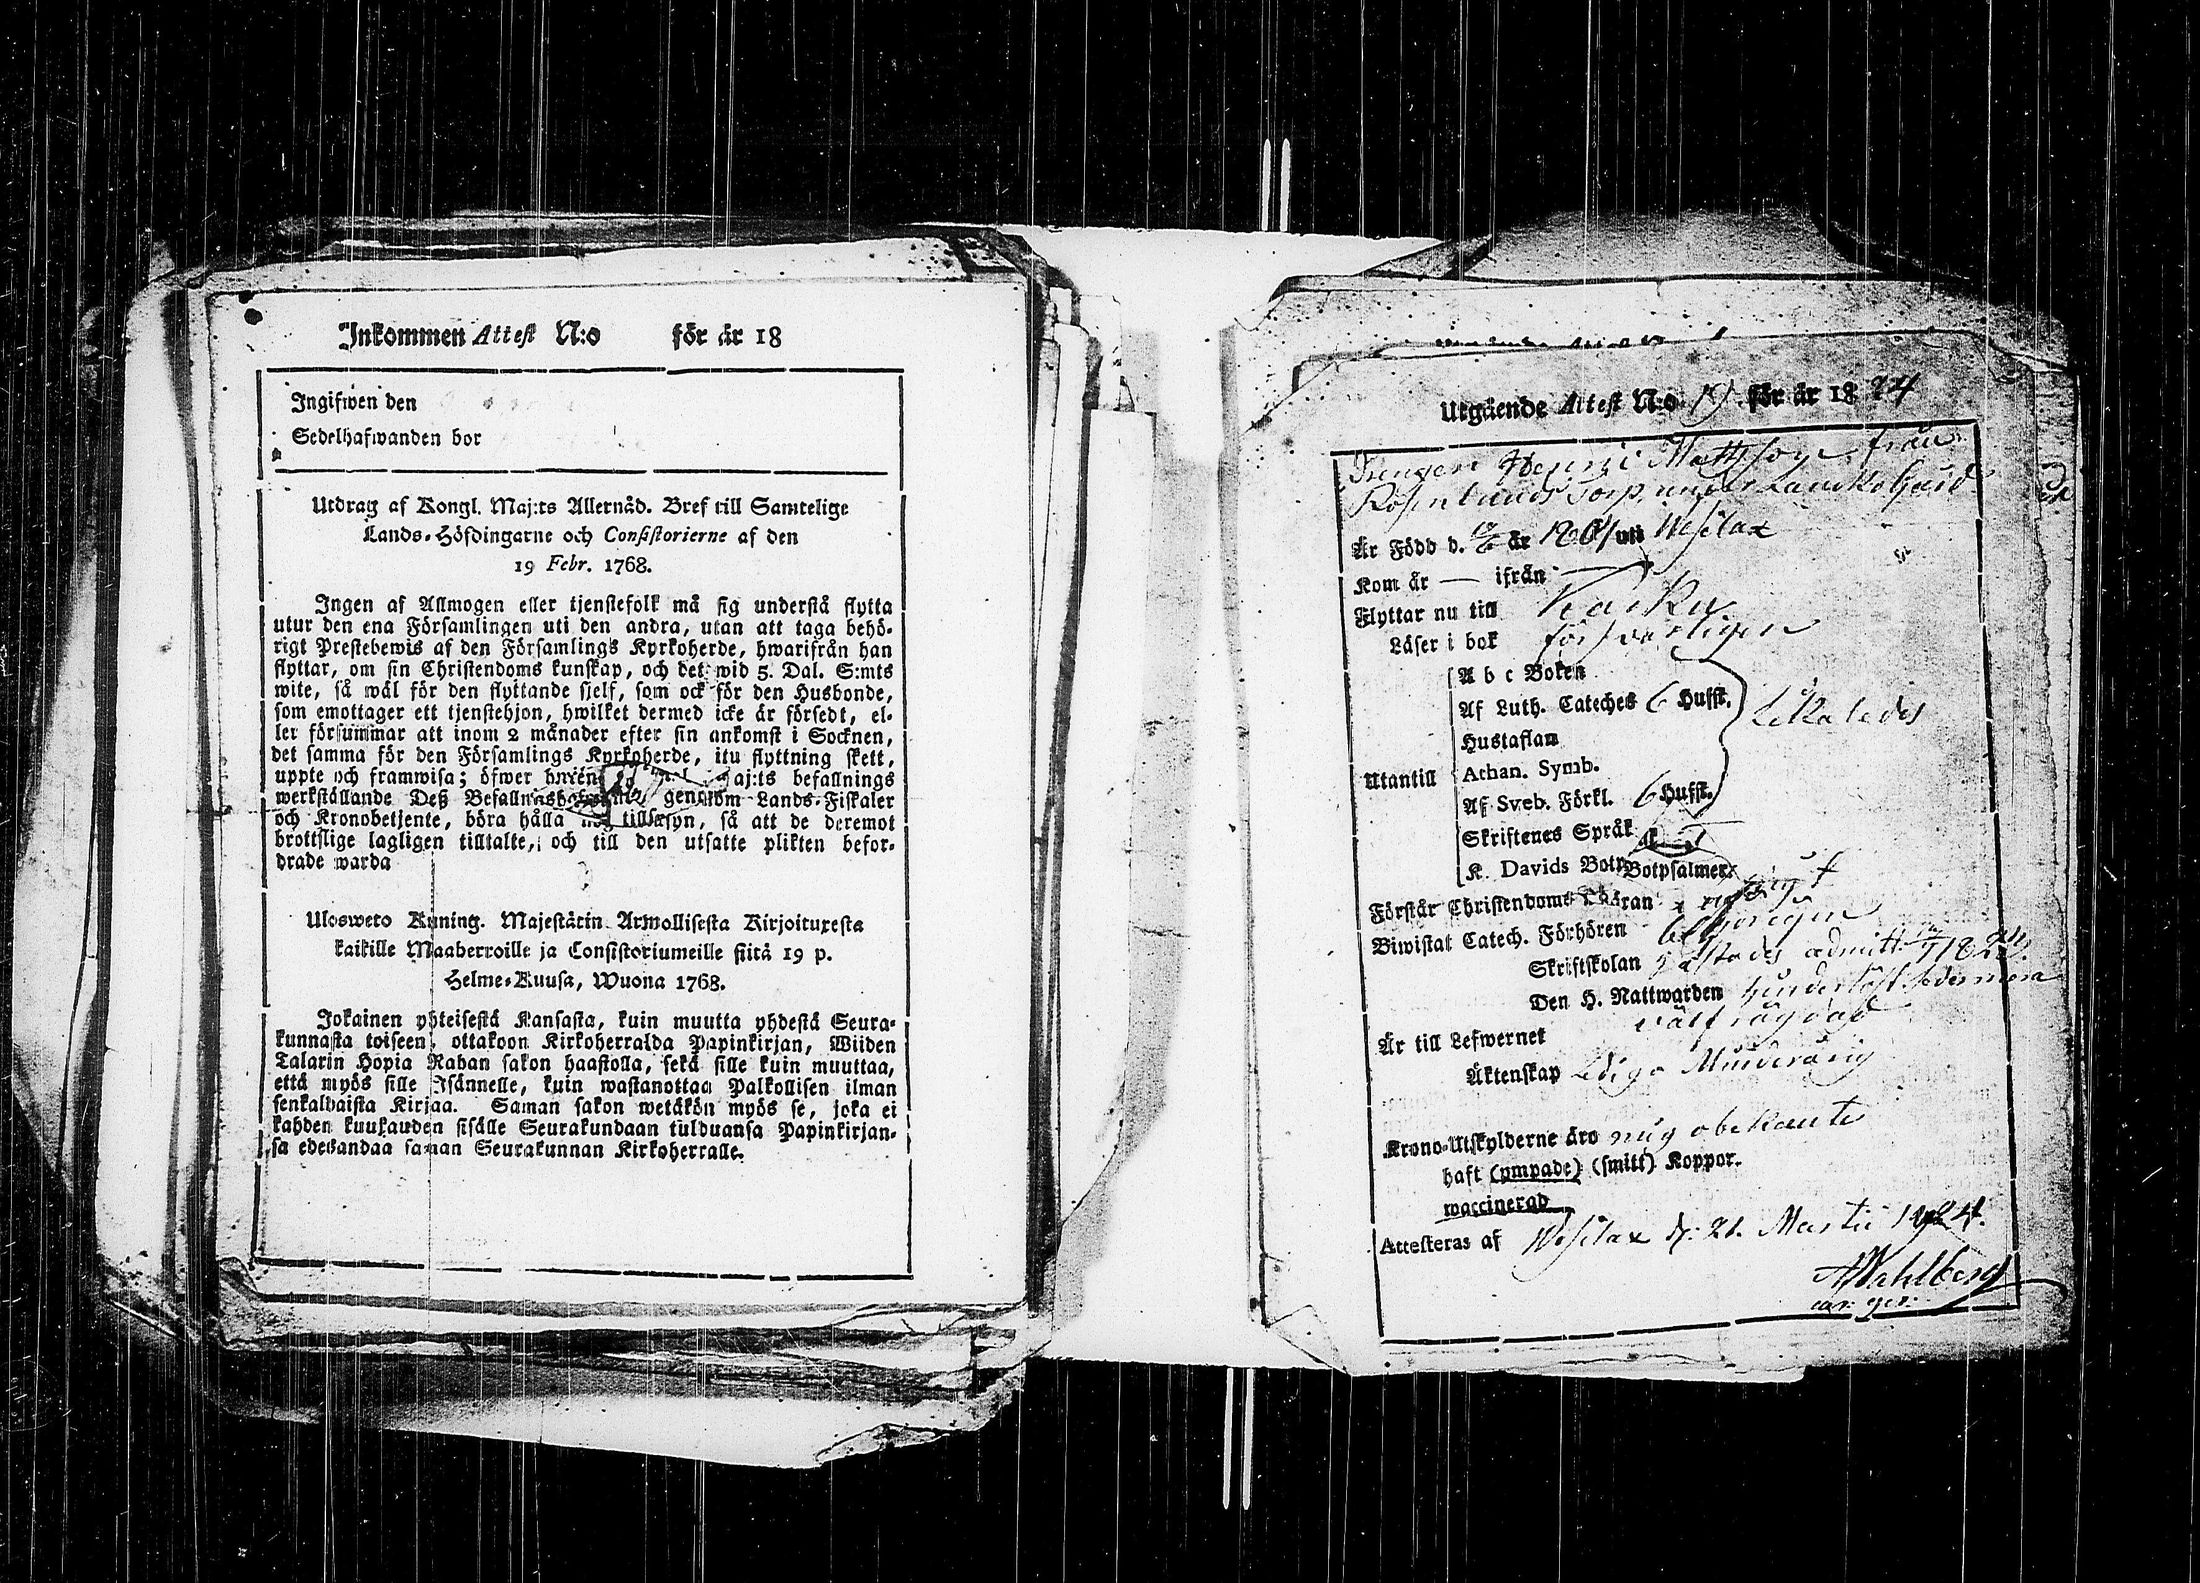 Inkommen Attest N:o för år 18
Ingifwen den
Sedelhafwanden bor
Utdrag af Kongl. Maj:ts Allernåd. Bref till Samtelige
Lands-Höfdingarne och Consistorierne af den
19 Febr. 1768.
Ingen af Allmogen eller tjenstefolk må sig understå flytta
utur den ena Församlingen uti den andra, utan att taga behö-
rigt Prestebewis af den Församlings Kyrkoherde, hwarifrån han
flyttar, om sin Christendoms kunskap, och det wid 5. Dal. S:mts
wite, så wäl för den flyttande sjelf, som ock för den Husbonde,
som emottager ett tjenstehjon, hwilket dermed icke är försedt, el-
ler försummar att inom 2 månader efter sin ankomst i Socknen,
det samma för den Församlings Kyrkoherde, itu flyttning skett,
uppte och framwisa; öfwer aj:ts befallnings
werkställande Deß genom Lands-Fiskaler
och Kronobetjente, böra hålla nog tillsyn, så att de deremot
brottslige lagligen tilltalte, och till den utsatte plikten befor-
drade warda
Ulosweto Kuning. Majestätin Armollisesta Kirjoituxesta
kaikille Maaherroille ja Consistoriumeille siitä 19 p.
Helme-Kuusa, Wuona 1768.
Jokainen yhteisestä Kansasta, kuin muutta yhdestä Seura-
kunnasta toiseen, ottakoon Kirkoherralda Papinkirjan, Wiiden
Talarin Hopia Rahan sakon haastolla, sekä sille kuin muuttaa,
että myös sille Isännelle, kuin wastanottaa Palkollisen ilman
senkalhaista Kirjaa. Saman sakon wetäkön myös se, joka ei
kahden kuukauden sisälle Seurakundaan tulduansa Papinkirjan-
sa edeßandaa saman Seurakunnan Kirkoherralle.
Utgående Attest N:o 19 för år 1824
Drengen Henric Mattsson från
Rosenlunds Torp under Laukko Gård
Är Född d. år 1801 uti Wesilax
Kom år — ifrån —
Flyttar nu till Karku
Läser i bok försvarligen
A b c Boken
Af Luth. Cateches 6 Hufst.
Hustaflan
Lekaledes
Utantill
Athan. Symb.
Af Sveb. Förkl. 6 Hufst.
Skriftenes Språk
K. Davids Botp Botpsalmer
Förstår Christendoms Läran
Biwistat Catech. Förhören behörigen
Skriftskolan admitt.
Den H. Nattwarden
Är till Lefwernet välfrägdad
Äktenskap Ledig o Minderårig
Krono-Utskylderne äro mig obekante
haft (ympade) (smitt) Koppor.
waccinerad
Attesteras af Wesilax d. 21. Martii 1824.
A Wahlberg